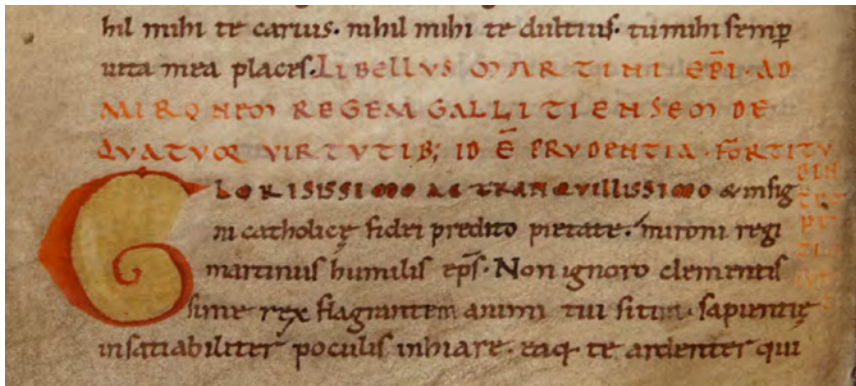 hil mihi te carius. nihil mihi te dultius. tu mihi semp
uita mea places. LIBELLVS MARTINI EPI. AD
MIRONEM REGEM GALLITIENSEM DE
QVATVOR VIRTVTIB; ID E PRVDENTIA. FORTITV
GLORISISSIMO AC TRANQVILLISSIMO & insig
ni catholicę fidei predito pietate. mironi regi
martinus humilis eps. Non ignoro clementis
sime rex flagrantem animi tui sitim sapientię
insatiabiliter poculis inhiare. eaq te ardenter qui